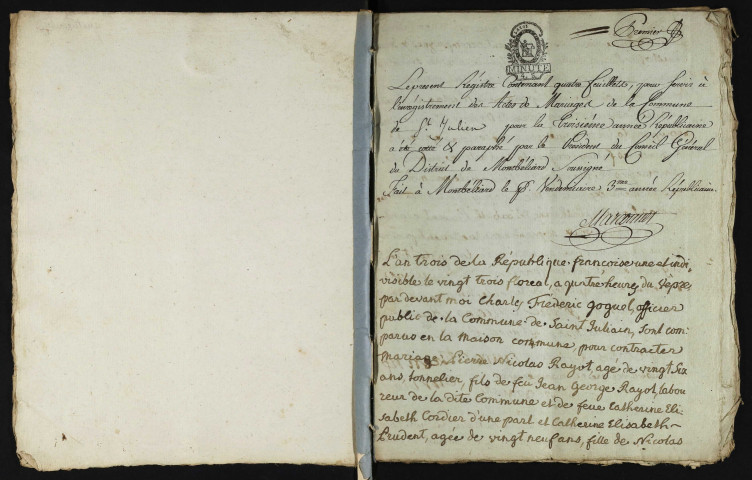 Premier
MINUTE
Le present Régistre Contenant quatre feuillets, pour servir à
l'enrégistrement des Actes de Mariages de la Commune
de St. Julien pour la troisiéme année Républicaine
a été cotté & paraphé par le President du Conseil Général
du District de Montbéliard Soussigné
Fait à Montbéliard le Vendemiaire 3me année Républicaine.
L'an trois de la République francoise une et indi
visible le vingt trois floreal, a quatre heures du Vepre
par devant moi Charles Frederic Goguel, officier
public de la Commune de Saint Juliain, sont com
parus en la maison commune pour contracter
mariage Pierre Nicolas Rayot, age de vingt six
ans, tonnelier, fils de feu Jean George Rayot, labou
reur de la dite Commune et de feue Catherine Eli
sabeth Cordier d'une part et Catherine Elisabeth
Prudent, agée de vingt neuf ans, fille de Nicolas